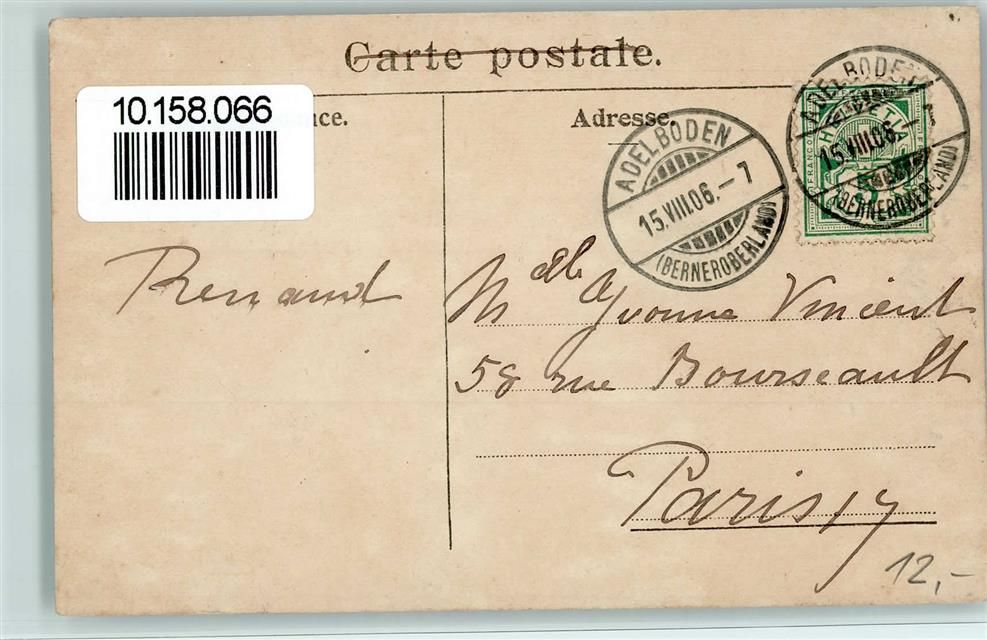 Carte postale.
10.158.066
nce.
Adresse.
ADELBODEN
15.VIII.06.-7
(BERNEROBERLAND)
ADELBODEN
15.VIII.06.-7
(BERNEROBERLAND)
FRANCO
HELVETIA
5
Renaud
Mdlle Yvonne Vincent
58 rue Bourseault
Paris 17
12,-